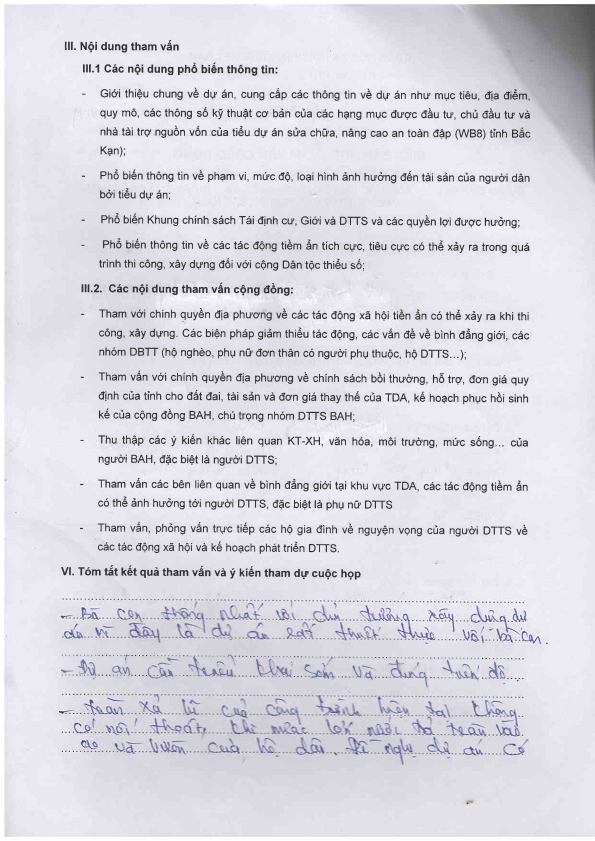 III. Nội dung tham vấn
III.1 Các nội dung phổ biến thông tin:
- Giới thiệu chung về dự án, cung cấp các thông tin về dự án như mục tiêu, địa điểm,
quy mô, các thông số kỹ thuật cơ bản của các hạng mục được đầu tư, chủ đầu tư và
nhà tài trợ nguồn vốn của tiểu dự án sửa chữa, nâng cao an toàn đập (WB8) tỉnh Bắc
Kạn);
- Phổ biến thông tin về phạm vi, mức độ, loại hình ảnh hưởng đến tài sản của người dân
bởi tiểu dự án;
- Phổ biến Khung chính sách Tái định cư, Giới và DTTS và các quyền lợi được hưởng;
- Phổ biến thông tin về các tác động tiềm ẩn tích cực, tiêu cực có thể xảy ra trong quá
trình thi công, xây dựng đối với cộng Dân tộc thiểu số;
III.2. Các nội dung tham vấn cộng đồng:
- Tham với chính quyền địa phương về các tác động xã hội tiền ẩn có thể xảy ra khi thi
công, xây dựng. Các biện pháp giảm thiểu tác động, các vấn đề về bình đẳng giới, các
nhóm DBTT (hộ nghèo, phụ nữ đơn thân có người phụ thuộc, hộ DTTS...);
- Tham vấn với chính quyền địa phương về chính sách bồi thường, hỗ trợ, đơn giá quy
định của tỉnh cho đất đai, tài sản và đơn giá thay thế của TDA, kế hoạch phục hồi sinh
kế của cộng đồng BAH, chú trọng nhóm DTTS BAH;
- Thu thập các ý kiến khác liên quan KT-XH, văn hóa, môi trường, mức sống... của
người BAH, đặc biệt là người DTTS;
- Tham vấn các bên liên quan về bình đẳng giới tại khu vực TDA, các tác động tiềm ẩn
có thể ảnh hưởng tới người DTTS, đặc biệt là phụ nữ DTTS
- Tham vấn, phỏng vấn trực tiếp các hộ gia đình về nguyện vọng của người DTTS về
các tác động xã hội và kế hoạch phát triển DTTS.
VI. Tóm tắt kết quả tham vấn và ý kiến tham dự cuộc họp
- Bà con thống nhất với chủ trương xây dựng dự
án vì đây là dự án rất thiết thực với bà con.
- Dự án cần triển khai sớm và đúng tiến độ.
- tràn xả lũ của công trình hiện tại không
có nơi thoát, khi nước tràn vào
ao và vườn của hộ dân. Đề nghị dự án có